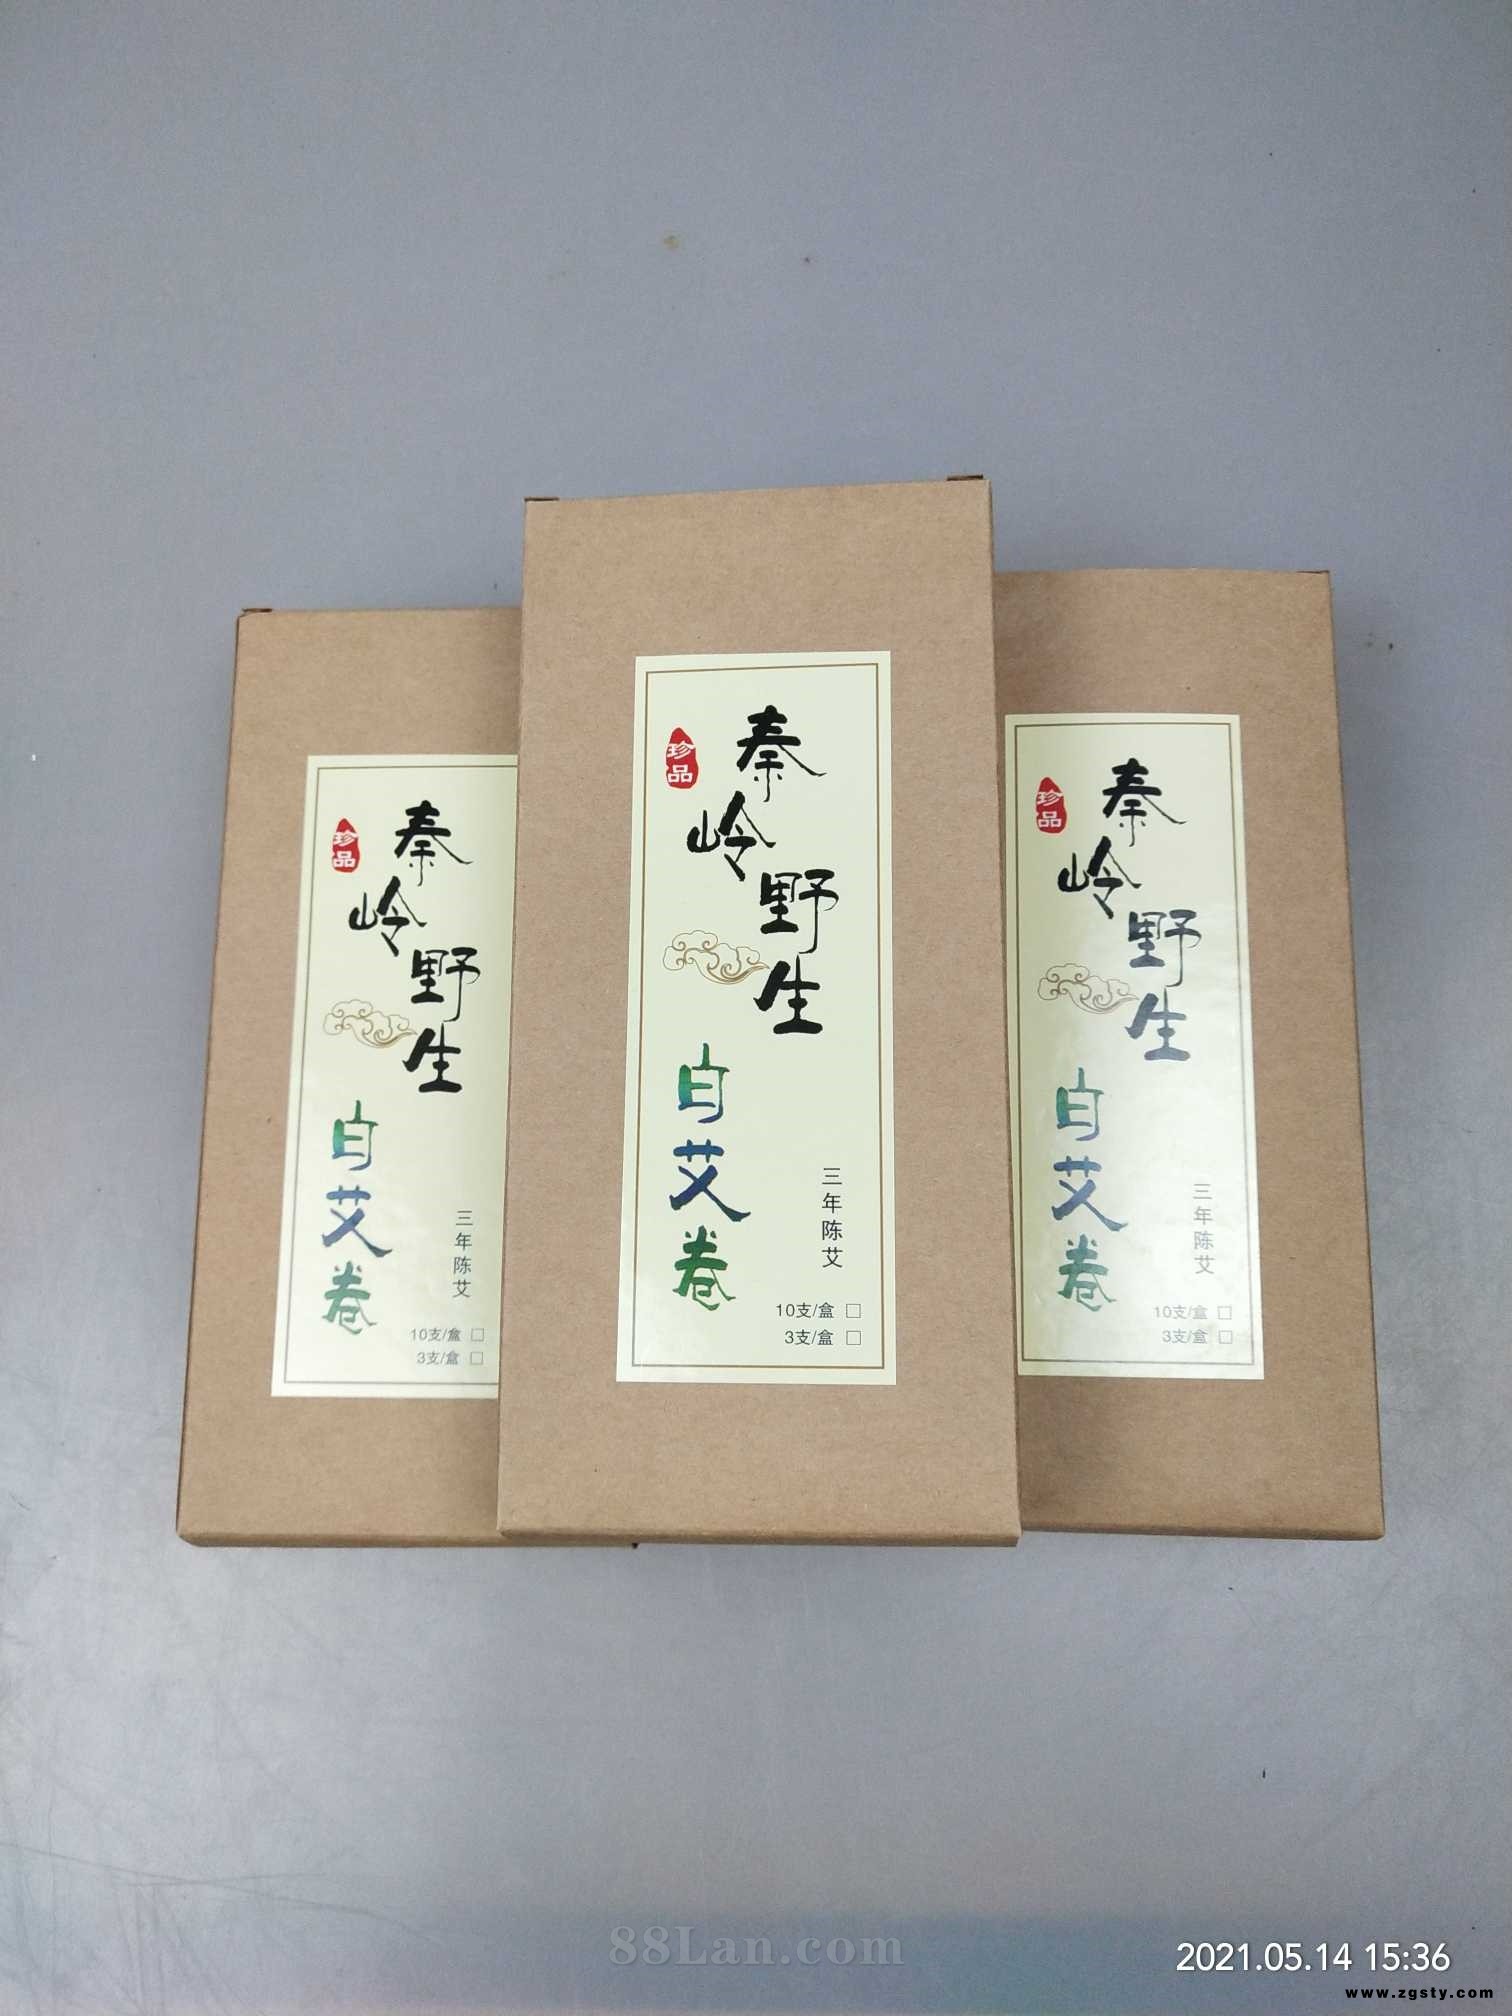 珍品
秦岭野生
白艾卷
三年陈艾
10支/盒 □
3支/盒 □
珍品
秦岭野生
白艾卷
三年陈艾
10支/盒 □
3支/盒 □
珍品
秦岭野生
白艾卷
三年陈艾
10支/盒 □
3支/盒 □
88Lan.com
2021.05.14 15:36
www.zgsty.com